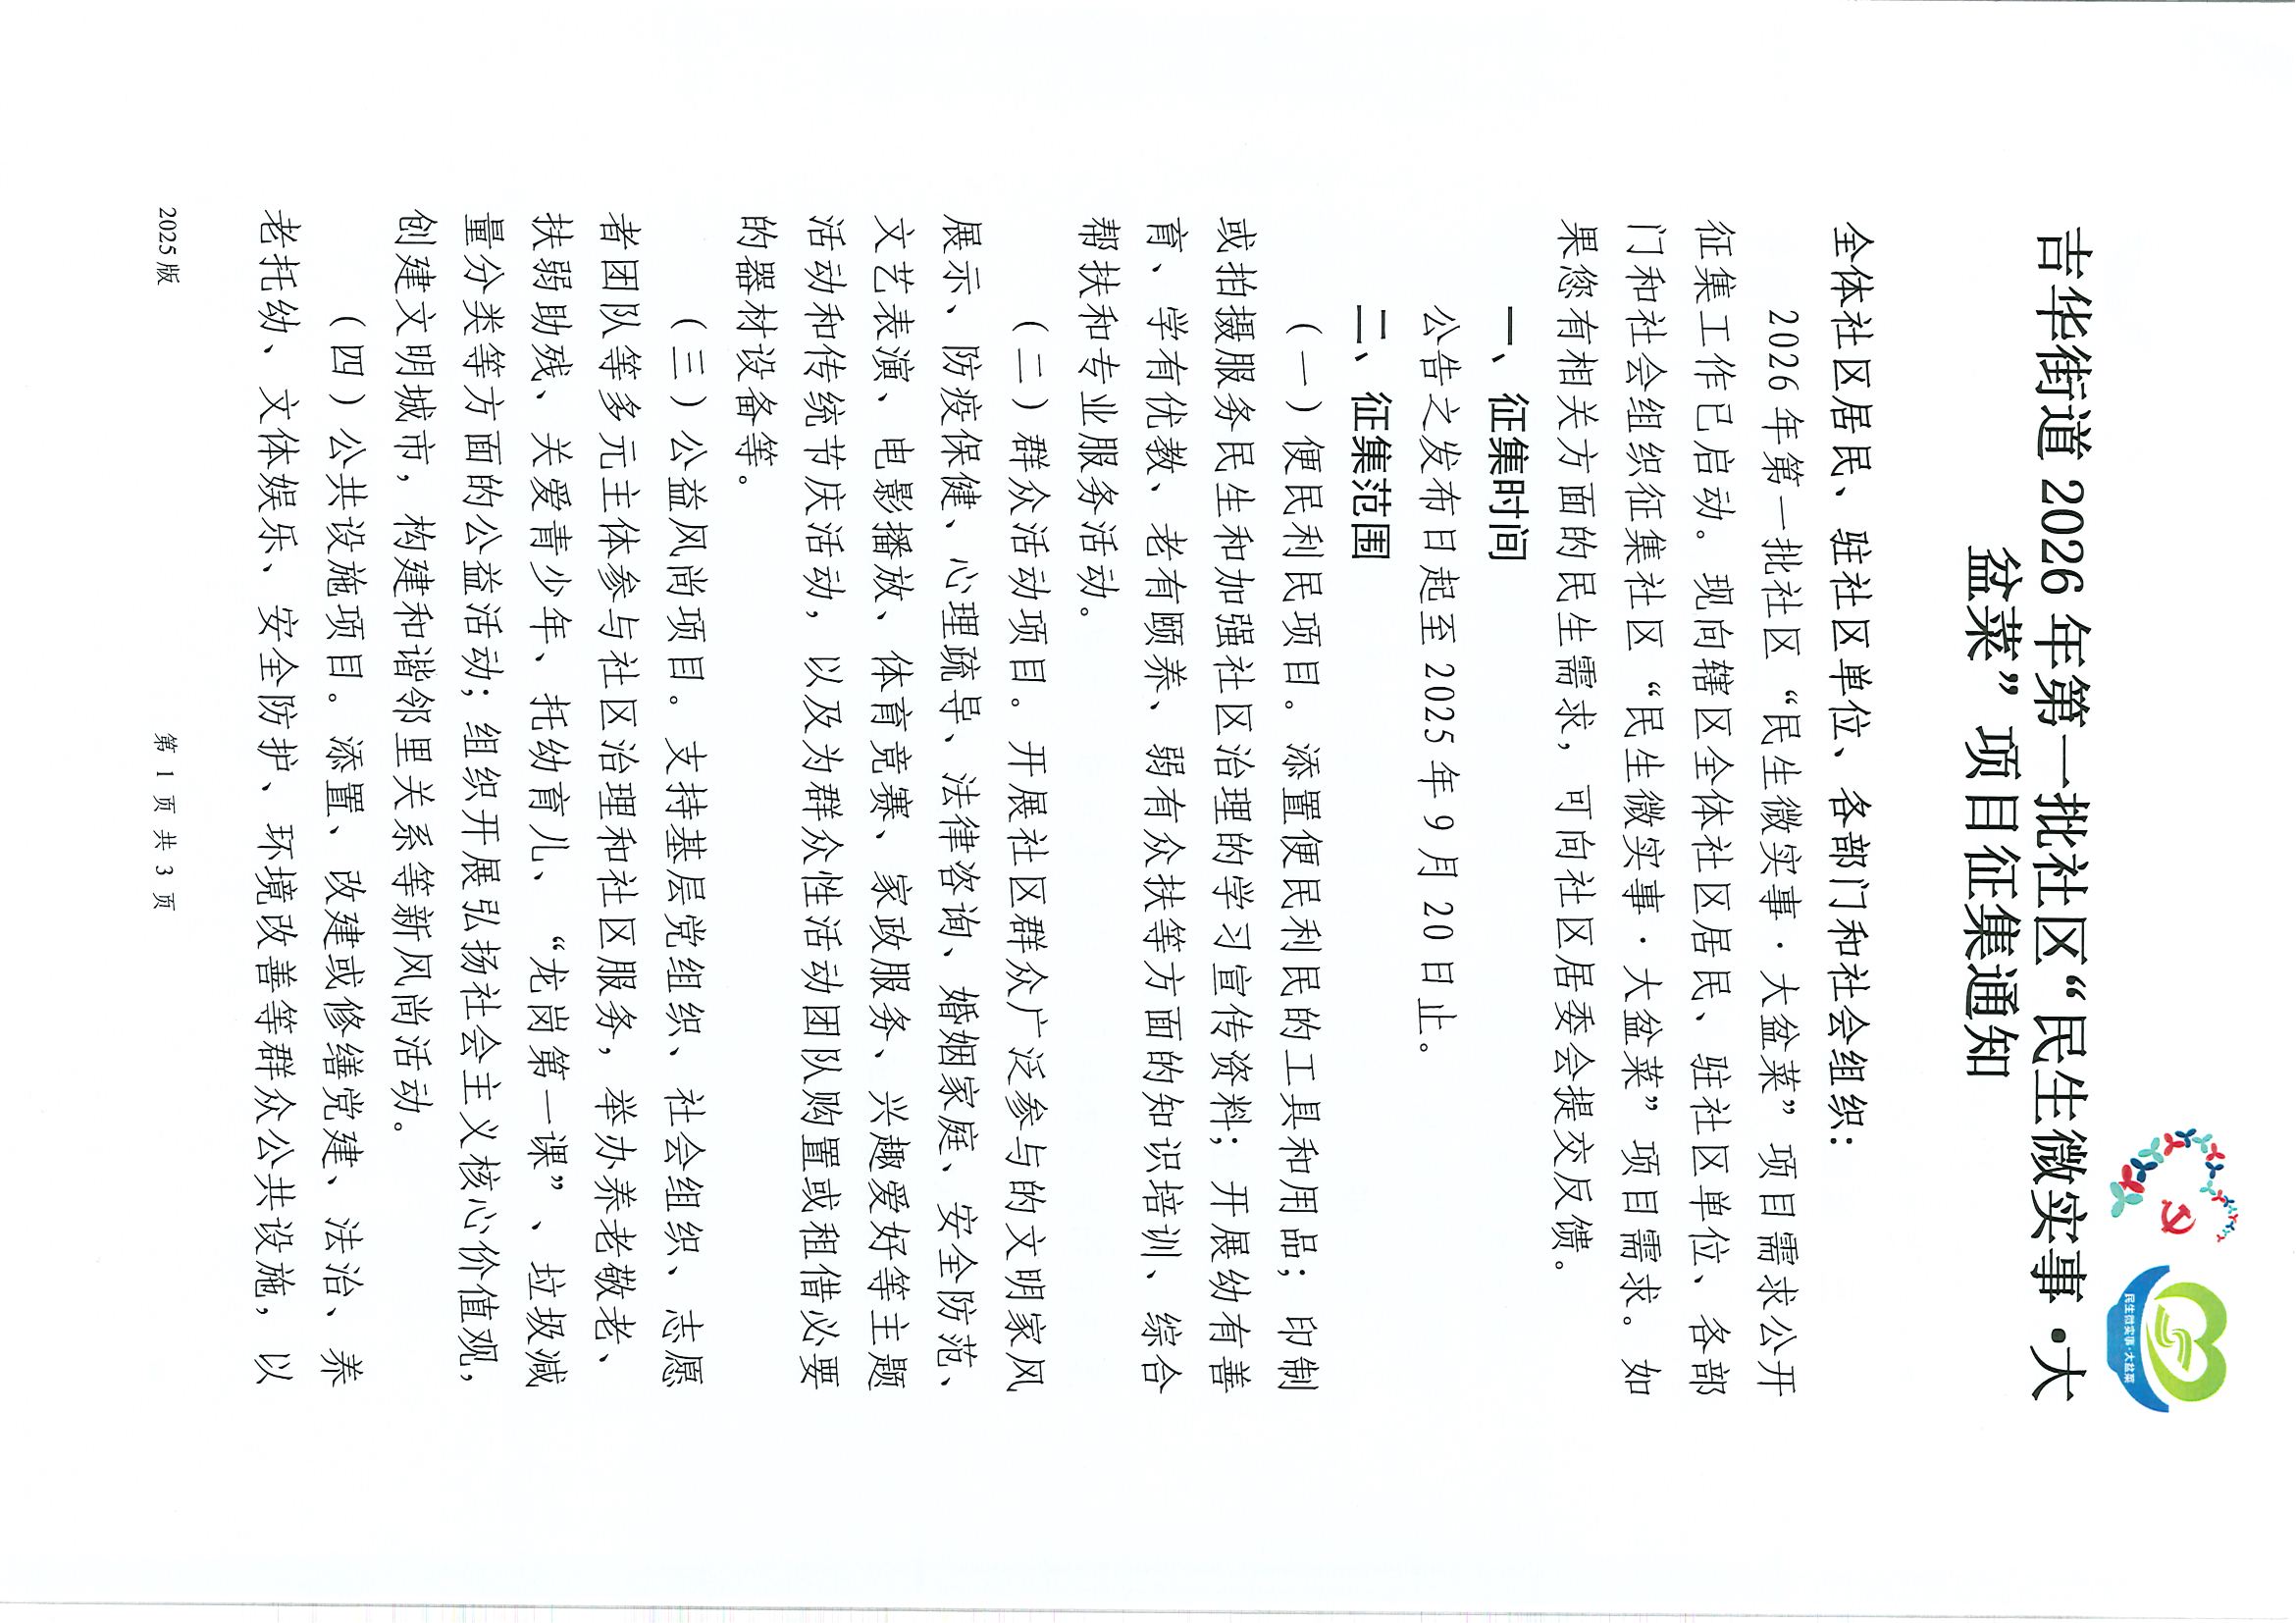 民生微实事·大盆菜
吉华街道 2026 年第一批社区“民生微实事·大
盆菜”项目征集通知
全体社区居民、驻社区单位、各部门和社会组织：
2026 年第一批社区“民生微实事·大盆菜”项目需求公开
征集工作已启动。现向辖区全体社区居民、驻社区单位、各部
门和社会组织征集社区“民生微实事·大盆菜”项目需求。如
果您有相关方面的民生需求，可向社区居委会提交反馈。
一、征集时间
公告之发布日起至 2025 年 9 月 20 日止。
二、征集范围
（一）便民利民项目。添置便民利民的工具和用品；印制
或拍摄服务民生和加强社区治理的学习宣传资料；开展幼有善
育、学有优教、老有颐养、弱有众扶等方面的知识培训、综合
帮扶和专业服务活动。
（二）群众活动项目。开展社区群众广泛参与的文明家风
展示、防疫保健、心理疏导、法律咨询、婚姻家庭、安全防范、
文艺表演、电影播放、体育竞赛、家政服务、兴趣爱好等主题
活动和传统节庆活动，以及为群众性活动团队购置或租借必要
的器材设备等。
（三）公益风尚项目。支持基层党组织、社会组织、志愿
者团队等多元主体参与社区治理和社区服务，举办养老敬老、
扶弱助残、关爱青少年、托幼育儿、“龙岗第一课”、垃圾减
量分类等方面的公益活动；组织开展弘扬社会主义核心价值观，
创建文明城市，构建和谐邻里关系等新风尚活动。
（四）公共设施项目。添置、改建或修缮党建、法治、养
老托幼、文体娱乐、安全防护、环境改善等群众公共设施，以
2025 版
第 1 页 共 3 页